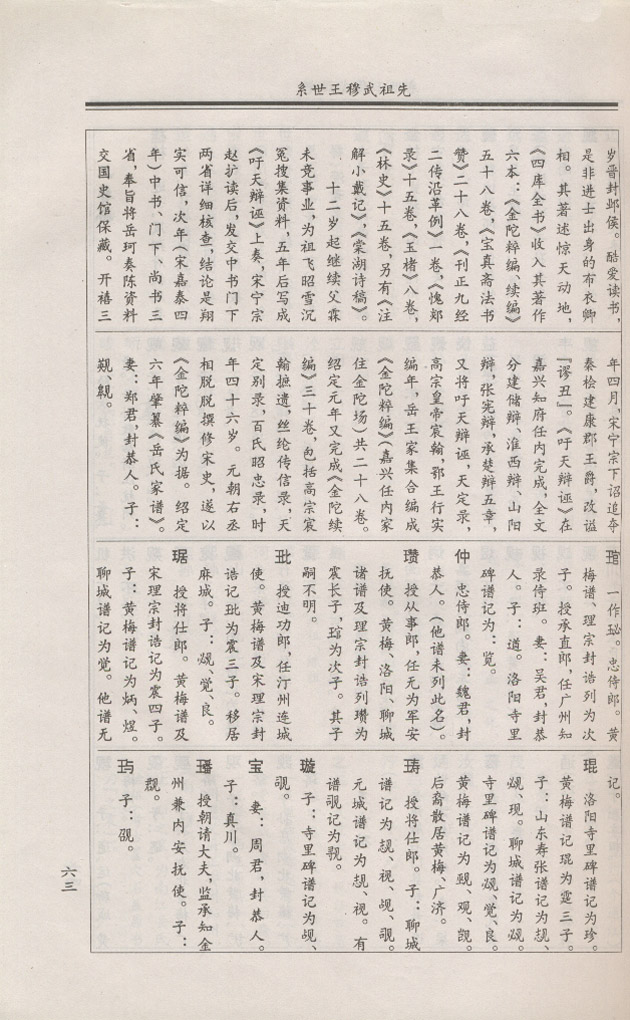 系世王穆武祖先
岁晋封邺侯。酷爱读书，
是非进士出身的布衣卿
相。其著述惊天动地，
《四库全书》收入其著作
六本：《金陀粹编、续编》
五十八卷，《宝真斋法书
赞》二十八卷，《刊正九经
三传沿革例》一卷，《愧郯
录》十五卷，《玉楮》八卷，
《林史》十五卷，另有《注
解小戴记》，《棠湖诗稿》。
十二岁起继续父霖
未竞事业，为祖飞昭雪沉
冤搜集资料，五年后写成
《吁天辩诬》上奏，宋宁宗
赵扩读后，发交中书门下
两省详细核查，结论是翔
实可信，次年（宋嘉泰四
年）中书、门下、尚书三
省，奉旨将岳珂奏陈资料
交国史馆保藏。开禧三
年四月，宋宁宗下诏追夺
秦桧建康郡王爵，改谥
『谬丑』。《吁天辩诬》在
嘉兴知府任内完成，全文
分建储辩、淮西辩、山阳
辩，张宪辩，承楚辩五章，
又将吁天辩诬，天定录，
高宗皇帝宸翰，鄂王行实
编年，岳王家集合编成
《金陀粹编》（嘉兴任内家
住金陀场）共二十八卷。
绍定元年又完成《金陀续
编》三十卷，包括高宗宸
翰摭遗，丝纶传信录，天
定别录，百氏昭忠录，时
年四十六岁。元朝右丞
相脱脱撰修宋史，遂以
《金陀粹编》为据。绍定
六年肇纂《岳氏家谱》。
妻：郑君，封恭人。子：
一作。忠侍郎。黄
梅谱、理宗封诰列为次
子。授承直郎，任广州知
录侍班。妻：吴君，封恭
人。子：道。洛阳寺里
碑谱记为：览。
仲 忠侍郎。妻：魏君，封
恭人。（他谱未列此名）。
瓒 授从事郎，任无为军安
抚使。黄梅、洛阳、聊城
诸谱及理宗封诰列瓒为
震长子，琯为次子。其子
嗣不明。
玭 授迪功郎，任汀州连城
使。黄梅谱及宋理宗封
诰记玭为震三子。移居
麻城。子：觉、良。
琚 授将仕郎。黄梅谱及
宋理宗封诰记为震四子。
子：黄梅谱记为炳、煜。
聊城谱记为觉。他谱无
记。
琨 洛阳寺里碑谱记为珍。
黄梅谱记琨为霆三子。
子：山东寿张谱记为
现。聊城谱记为
寺里碑谱记为觉、良。
黄梅谱记为观、
后裔散居黄梅、广济。
璹 授将仕郎。子：聊城
谱记为视、
元城谱记为视。有
谱觇记为
璇 子：寺里碑谱记为
觇。
宝 妻：周君，封恭人。
子：真川。
璠 授朝请大夫，监承知金
州兼内安抚使。子：
玙 子：
六三